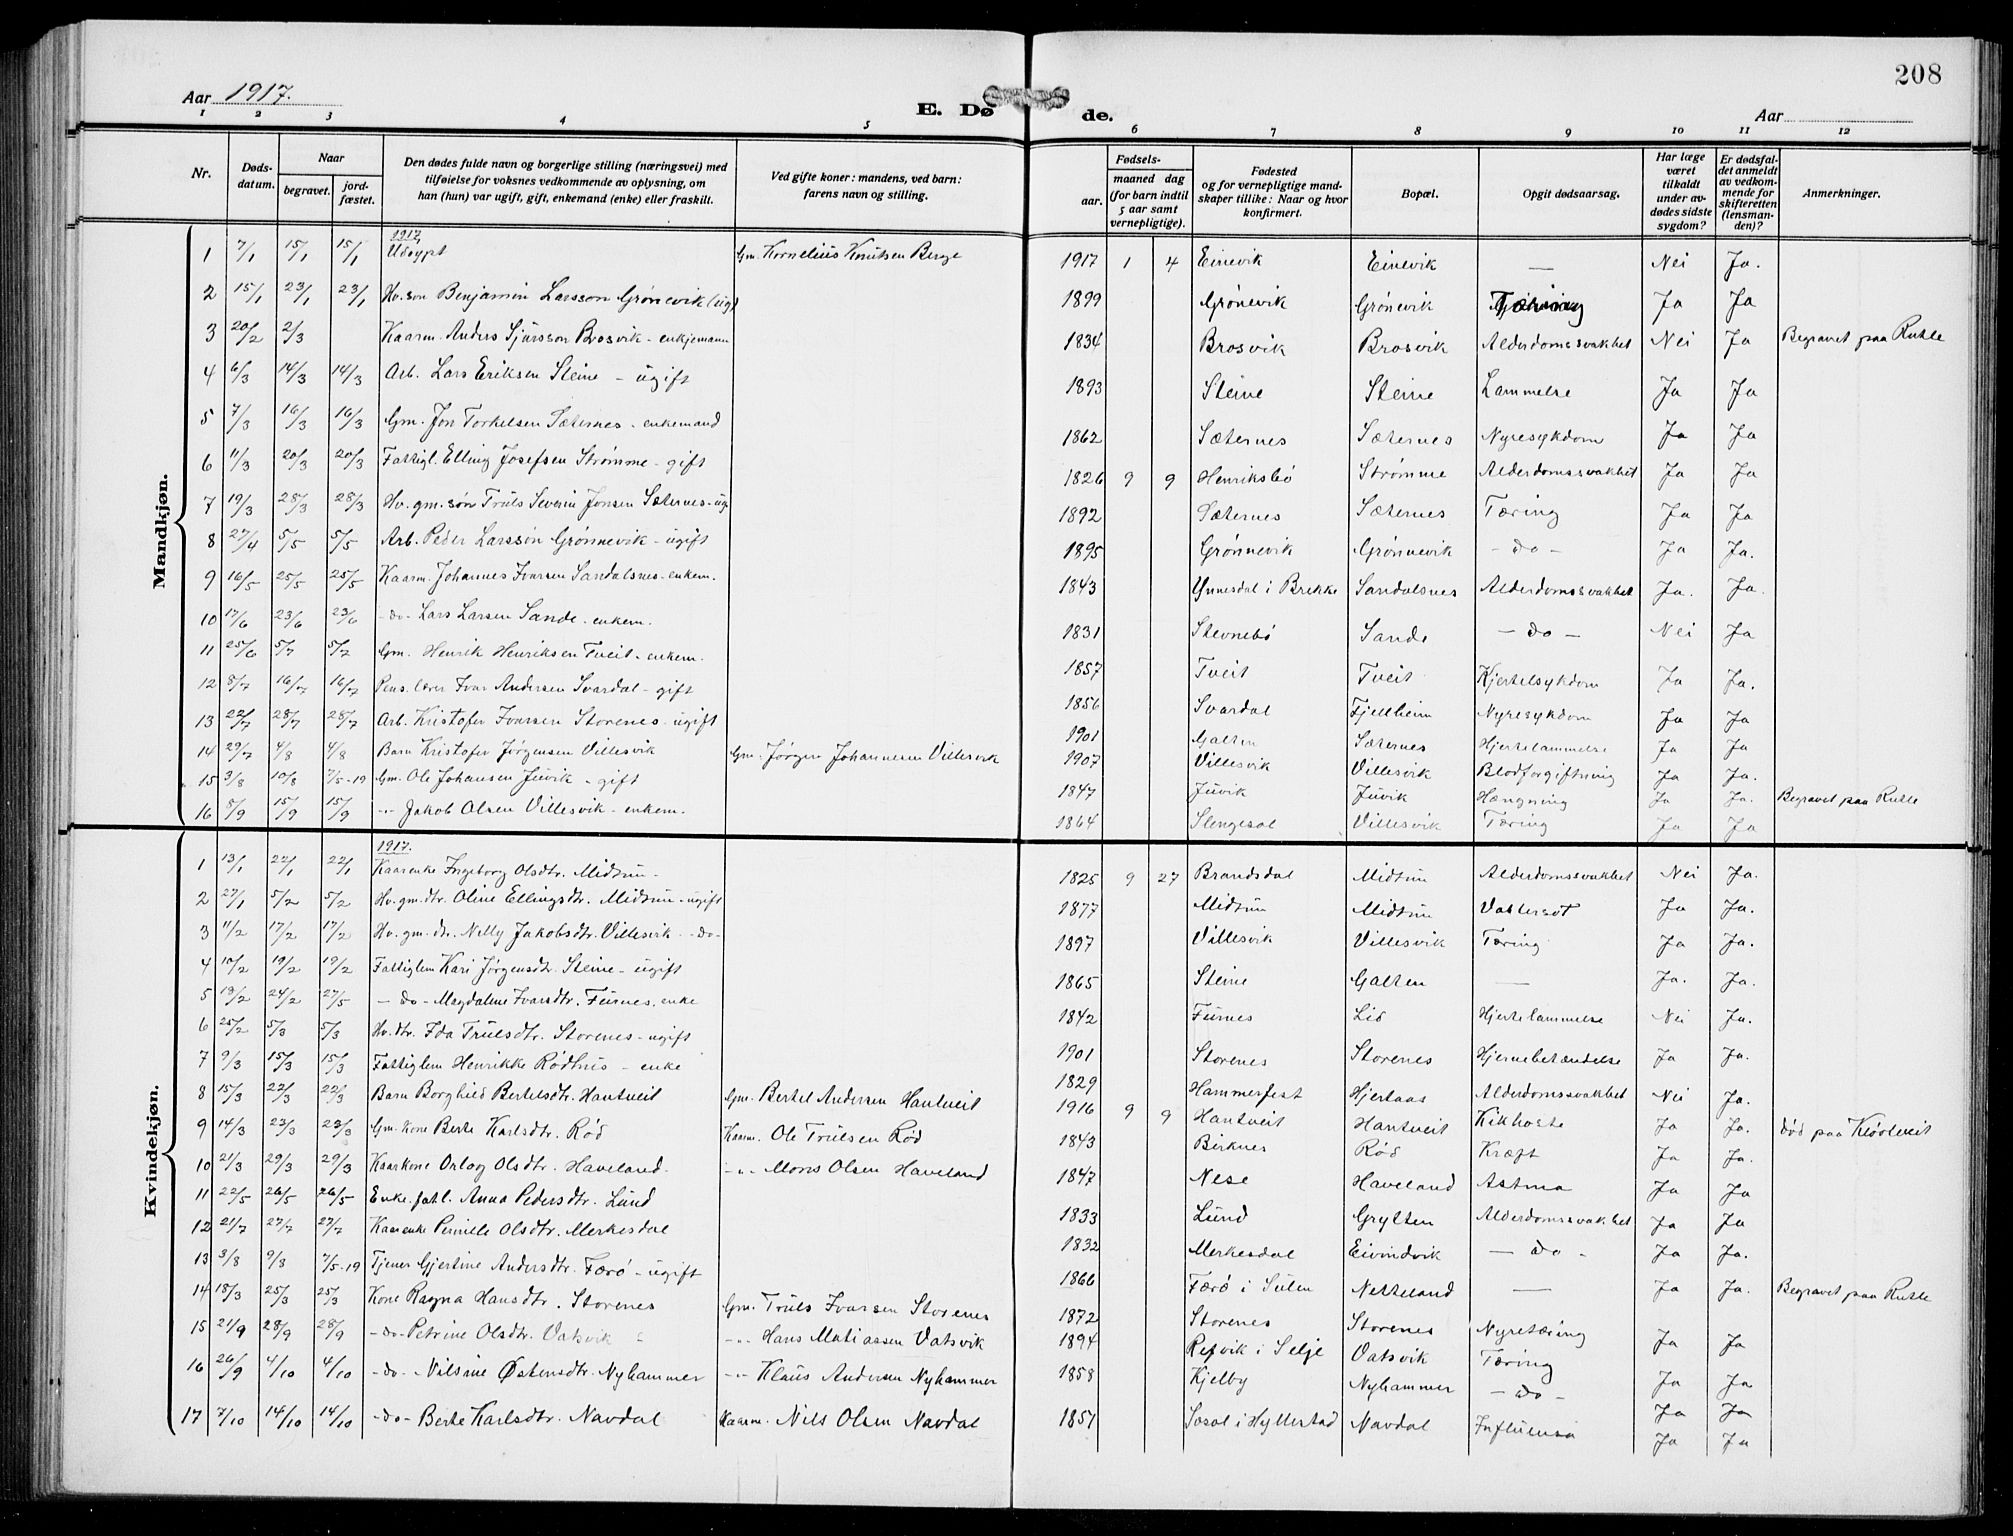 208
Aar 1917.
E. Døde.
Aar
1 2 3 4 5 6 7 8 9 10 11 12
Nr.
Døds-datum.
Naar
begravet.
jord-fæstet.
Den dødes fulde navn og borgerlige stilling (næringsvei) med tilføielse for voksnes vedkommende av oplysning, om han (hun) var ugift, gift, enkemand (enke) eller fraskilt.
Ved gifte koner: mandens, ved barn: farens navn og stilling.
Fødsels-
aar.
maaned dag
(for barn indtil 5 aar samt vernepligtige).
Fødested og for vernepligtige mandskaper tillike: Naar og hvor konfirmert.
Bopæl.
Opgit dødsaarsag.
Har læge været tilkaldt under avdødes sidste sygdom?
Er dødsfaldet anmeldt av vedkommende for skifteretten (lensmanden)?
Anmerkninger.
Mandkjøn.
1917
1 7/1 15/1 15/1 Udøypt Gm. Kornelius Knutsen Berge 1917 1 4 Einevik Einevik — Nei Ja.
2 15/1 23/1 23/1 Hv. søn Benjamin Larsson Grønevik (ug) 1899 Grønevik Grønevik Tæring Ja Ja
3 20/2 2/3 Kaarm. Anders Sjursson Brosvik - enkjemann 1834 Brosvik Brosvik Alderdomssvakhet Nei Ja Begravet paa Rutle
4 6/3 14/3 14/3 Arb. Lars Eriksen Steine - ugift 1893 Steine Steine Lammelse Ja Ja
5 7/3 16/3 16/3 Gm. Jon Torkelsen Sæternes - enkemand 1862 Sæternes Sæternes Nyresykdom Ja Ja
6 11/3 20/3 20/3 Fattigl. Elling Josefsen Strømme - gift 1826 9 9 Henriksbø Strømme Alderdomssvakhet Ja Ja
7 19/3 28/3 28/3 Hv. gm. søn Truls Severin Jonsen Sæternes - ug. 1892 Sæternes Sæternes Tæring Ja Ja
8 27/4 5/5 5/5 Arb. Peder Larsson Grønnevik - ugift 1895 Grønnevik Grønnevik - do - Ja Ja.
9 16/5 25/5 25/5 Kaarm. Johannes Ivarsen Sandalsnes - enkem. 1843 Ynnesdal i Brekke Sandalsnes Alderdomssvakhet Ja. Ja.
10 17/6 23/6 23/6 - do - Lars Larsen Sande - enkem. 1831 Stevnebø Sande - do - Nei Ja
11 25/6 5/7 5/7 Gm. Henrik Henriksen Tveit - enkem. 1857 Tveit Tveit Kjertelsykdom Ja Ja.
12 8/7 16/7 16/7 Pens. lærer Ivar Andersen Svardal - gift 1856 Svardal Fjellheim Nyresykdom Ja Ja
13 22/7 28/7 28/7 Arb. Kristofer Ivarsen Storenes - ugift 1901 Galten Sæternes Hjertelammelse Ja Ja
14 29/7 4/8 4/8 Barn Kristofer Jørgensen Villesvik Gm. Jørgen Johannesen Villesvik 1907 Villesvik Villesvik Blodforgiftning Ja Ja.
15 3/8 10/8 7/5-19 Gm. Ole Johansen Juvik - gift 1847 Juvik Juvik Hængning Ja Ja. Begravet paa Rutle
16 8/9 15/9 15/9 -"- Jakob Olsen Villesvik - enkem. 1864 Slengesol Villesvik Tæring Ja Ja
Kvindekjøn.
1917.
1 13/1 22/1 22/1 Kaarenke Ingeborg Olsdtr. Midtun - 1825 9 27 Brandsdal Midtun Alderdomssvakhet Nei Ja.
2 27/1 5/2 5/2 Hv. gm. dtr. Oline Ellingsdtr. Midtun - ugift 1877 Midtun Midtun Vattersot Ja Ja.
3 11/2 17/2 17/2 Hv. gm. dtr. Nelly Jakobsdtr. Villesvik - do - 1897 Villesvik Villesvik Tæring Ja Ja.
4 10/2 19/2 19/2 Fattiglem Kari Jørgensdtr. Steine - ugift 1865 Steine Galten — Ja. Ja.
5 19/2 24/2 27/5 - do - Magdalene Ivarsdtr. Furnes. enke 1842 Furnes Lid Hjertelammelse Nei Ja.
6 25/2 5/3 5/3 Hv. dtr. Ida Trulsdtr. Storenes - ugift 1901 Storenes Storenes Hjernebetændelse Ja Ja.
7 9/3 15/3 15/3 Fattiglem Henrikke Rødhus - enke 1829 Hammerfest Hjertaas Alderdomssvakhet Nei Ja.
8 15/3 22/3 22/3 Barn Borghild Bertelsdtr. Hantveit Gm. Bertel Andersen Hantveit 1916 9 9 Hantveit Hantveit Kikhoste Ja Ja. Død paa Kløvtveit
9 14/3 23/3 23/3 Gm. kone Berte Karlsdtr. Rød Kaarm. Ole Trulsen Rød 1843 Birknes Rød Kræft Ja Ja.
10 21/3 29/3 29/3 Kaarkone Orlog Olsdtr. Haveland - -"- Mons Olsen Haveland 1847 Nese Haveland Astma Ja Ja
11 22/5 26/5 26/5 Enke. fatl. Anna Pedersdtr. Lund 1833 Lund Grytten Alderdomssvakhet Ja Ja
12 21/7 27/7 27/7 Kaarenke Pernille Olsdtr. Merkesdal 1832 Merkesdal Eivindvik - do - Ja Ja.
13 3/8 9/8 7/5-19 Tjener Gjertine Andersdtr. Færø - ugift 1866 Færø i Sulen Netteland — Ja Ja. Begravet paa Rutle
14 18/3 25/3 25/3 Kone Ragna Hansdtr. Storenes Gm. Truls Ivarsen Storenes 1872 Storenes Storenes Nyretæring Ja Ja
15 21/9 28/9 28/9 - do - Petrine Olsdtr. Vatsvik -"- Hans Matiassen Vatsvik 1894 Refvik i Selje Vatsvik Tæring Ja Ja
16 26/9 4/10 4/10 - do - Nilsine Østensdtr. Nyhammer -"- Klaus Andersen Nyhammer 1858 Kjelby Nyhammer - do - Ja Ja
17 7/10 14/10 14/10 - do - Berte Karlsdtr. Navdal Kaarm. Nils Olsen Navdal 1857 Sosol i Hyllestad Navdal Influensa Ja Ja